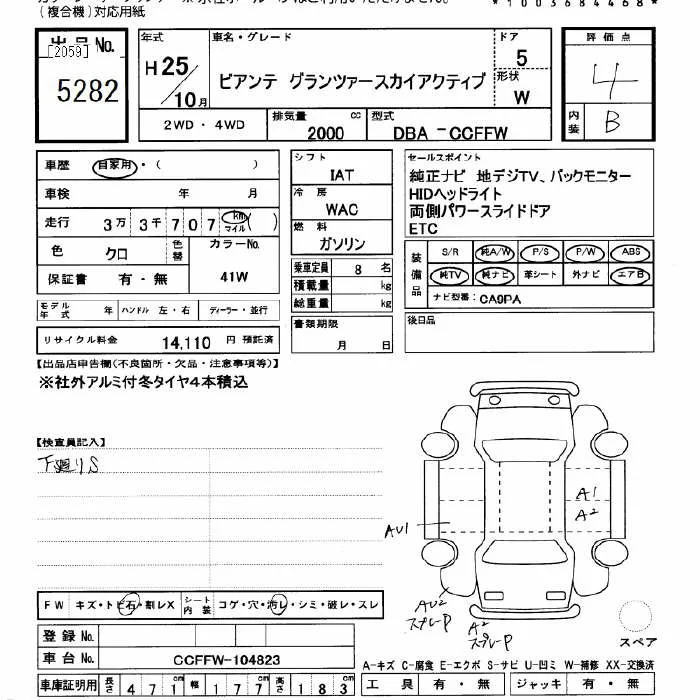 (複合機)対応用紙
*1003684468*
出品No.
[2059]
5282
年式
H25/10月
車名・グレード
ビアンテ グランツァースカイアクティブ
ドア
5
形状
W
2WD・4WD
排気量
2000
cc
型式
DBA -CCFFW
評価点
4
内装
B
車歴
自家用・( )
車検 年 月
走行 3万 3千 7 0 7 km マイル ( )
色 クロ
色替
カラーNo.
41W
保証書 有・無
モデル年式 年
ハンドル 左・右
ディーラー・並行
リサイクル料金 14,110 円 預託済
シフト
IAT
冷房
WAC
燃料
ガソリン
乗車定員 8 名
積載量 kg
総重量 kg
書類期限
月 日
セールスポイント
純正ナビ 地デジTV、バックモニター
HIDヘッドライト
両側パワースライドドア
ETC
装備品
S/R 純A/W P/S P/W ABS
純TV 純ナビ 革シート 外ナビ エアB
ナビ型番: CA9PA
後日品
【出品店申告欄(不良箇所・欠品・注意事項等)】
※社外アルミ付冬タイヤ4本積込
【検査員記入】
下廻りS
A1
A2
AU1
AU2
スプレーP
A2
スプレーP
スペア
FW キズ・トビ石・割レX
シート内装 コゲ・穴・汚レ・シミ・破レ・スレ
登録No.
車台No. CCFFW-104823
A-キズ C-腐食 E-エクボ S-サビ U-凹ミ W-補修 XX-交換済
車庫証明用 長さ 471cm 幅 177cm 高さ 183cm
工具 有・無 ジャッキ 有・無